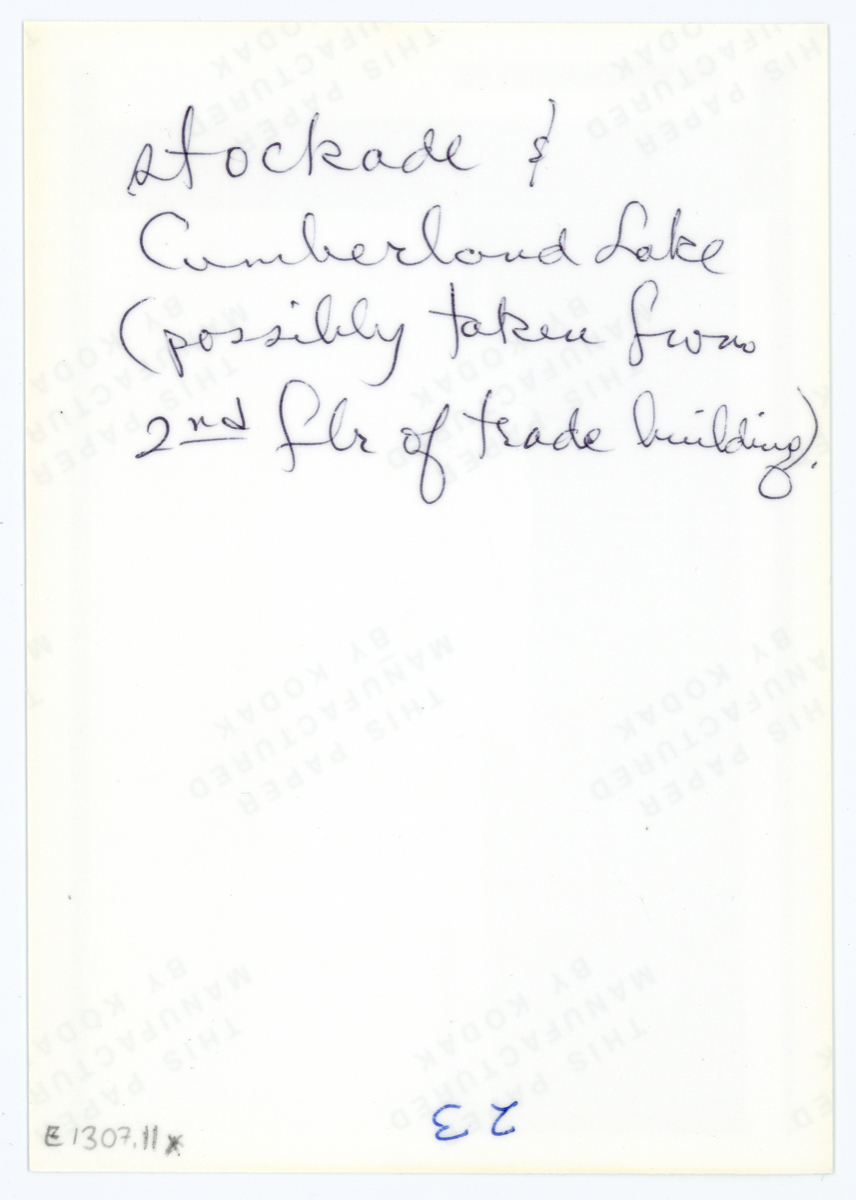 stockade &
Cumberland Lake
(possibly taken from
2nd flr of trade building).
THIS PAPER
MANUFACTURED
BY KODAK
23
E1307.11x